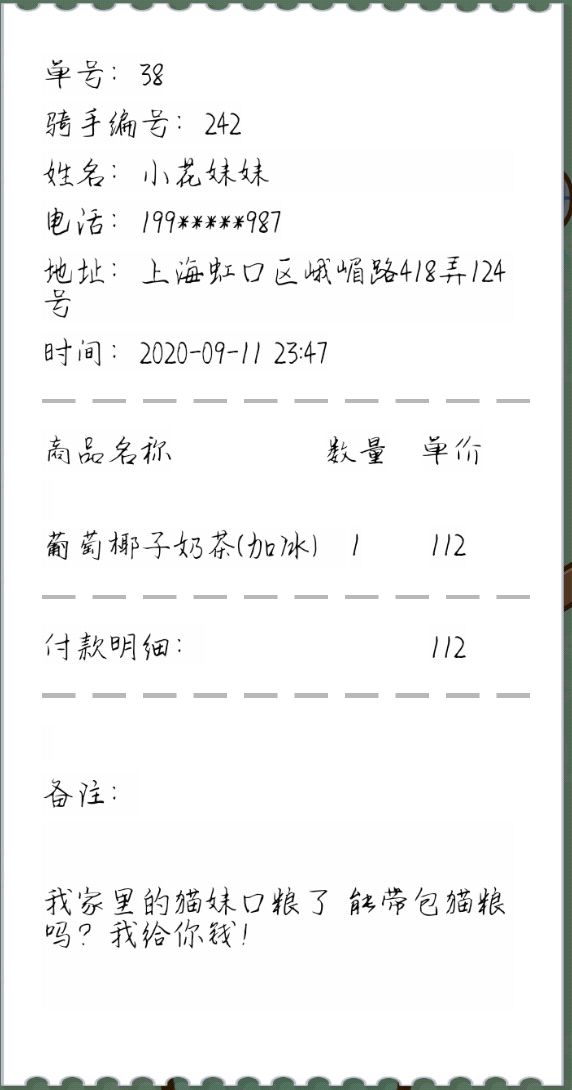 单号： 38
骑手编号： 242
姓名： 小花妹妹
电话： 199*****987
地址： 上海虹口区峨嵋路418弄124
号
时间： 2020-09-11 23:47
商品名称 数量 单价
葡萄椰子奶茶(加冰) 1 112
付款明细： 112
备注：
我家里的猫妹口粮了 能带包猫粮
吗？我给你钱！